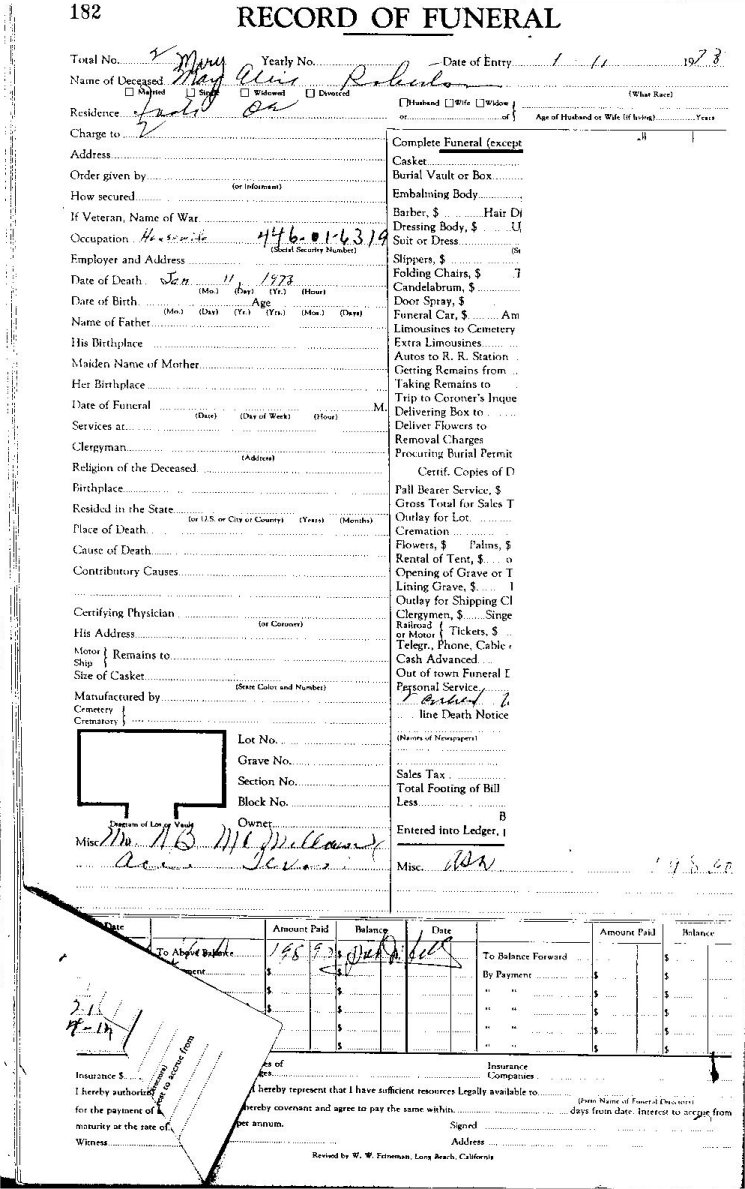 182
RECORD OF FUNERAL
Total No. 2 Yearly No. Date of Entry 1 - 11 1973
Mary
Name of Deceased May
Married Single Widowed Divorced
(What Race)
Husband Wife Widow
Residence
or of Age of Husband or Wife (if living) Years
Charge to
Address
Order given by
(or Informant)
How secured
If Veteran, Name of War
Occupation Housewife 446-01-6319
(Social Security Number)
Employer and Address
Date of Death Jan 11, 1973
(Mo.) (Day) (Yr.) (Hour)
Date of Birth Age
(Mo.) (Day) (Yr.) (Yrs.) (Mos.) (Days)
Name of Father
His Birthplace
Maiden Name of Mother
Her Birthplace
Date of Funeral M.
(Date) (Day of Week) (Hour)
Services at
Clergyman
(Address)
Religion of the Deceased
Birthplace
Resided in the State
(or U.S. or City or County) (Years) (Months)
Place of Death
Cause of Death
Contributory Causes
Certifying Physician
(or Coroner)
His Address
Motor
Ship } Remains to
Size of Casket
(State Color and Number)
Manufactured by
Cemetery
Crematory
Lot No.
Grave No.
Section No.
Block No.
Diagram of Lot or Vault Owner
Misc.
Texas
Complete Funeral (except
Casket
Burial Vault or Box
Embalming Body
Barber, $ Hair
Dressing Body, $
Suit or Dress
Slippers, $
Folding Chairs, $
Candelabrum, $
Door Spray, $
Funeral Car, $ Am
Limousines to Cemetery
Extra Limousines
Autos to R. R. Station
Getting Remains from
Taking Remains to
Trip to Coroner's Inque
Delivering Box to
Deliver Flowers to
Removal Charges
Procuring Burial Permit
Certif. Copies of D
Pall Bearer Service, $
Gross Total for Sales T
Outlay for Lot
Cremation
Flowers, $ Palms, $
Rental of Tent, $
Opening of Grave or T
Lining Grave, $
Outlay for Shipping Cl
Clergymen, $ Singe
Railroad
or Motor { Tickets, $
Telegr., Phone, Cable
Cash Advanced
Out of town Funeral
Personal Service
line Death Notice
(Names of Newspapers)
Sales Tax
Total Footing of Bill
Less
B
Entered into Ledger,
Misc.
Date Amount Paid Balance Date Amount Paid Balance
To Above Balance $ To Balance Forward $
ment $ $ By Payment $ $
$ $ " " $ $
$ $ " " $ $
$ $ " " $ $
$ $ " " $ $
to accrue from
Insurance $ Insurance
Companies
I hereby authoriz hereby represent that I have sufficient resources Legally available to
(Firm Name of Funeral Directors)
for the payment of hereby covenant and agree to pay the same within days from date. Interest to accrue from
maturity at the rate of per annum. Signed
Witness Address
Revised by W. W. Feineman, Long Beach, California